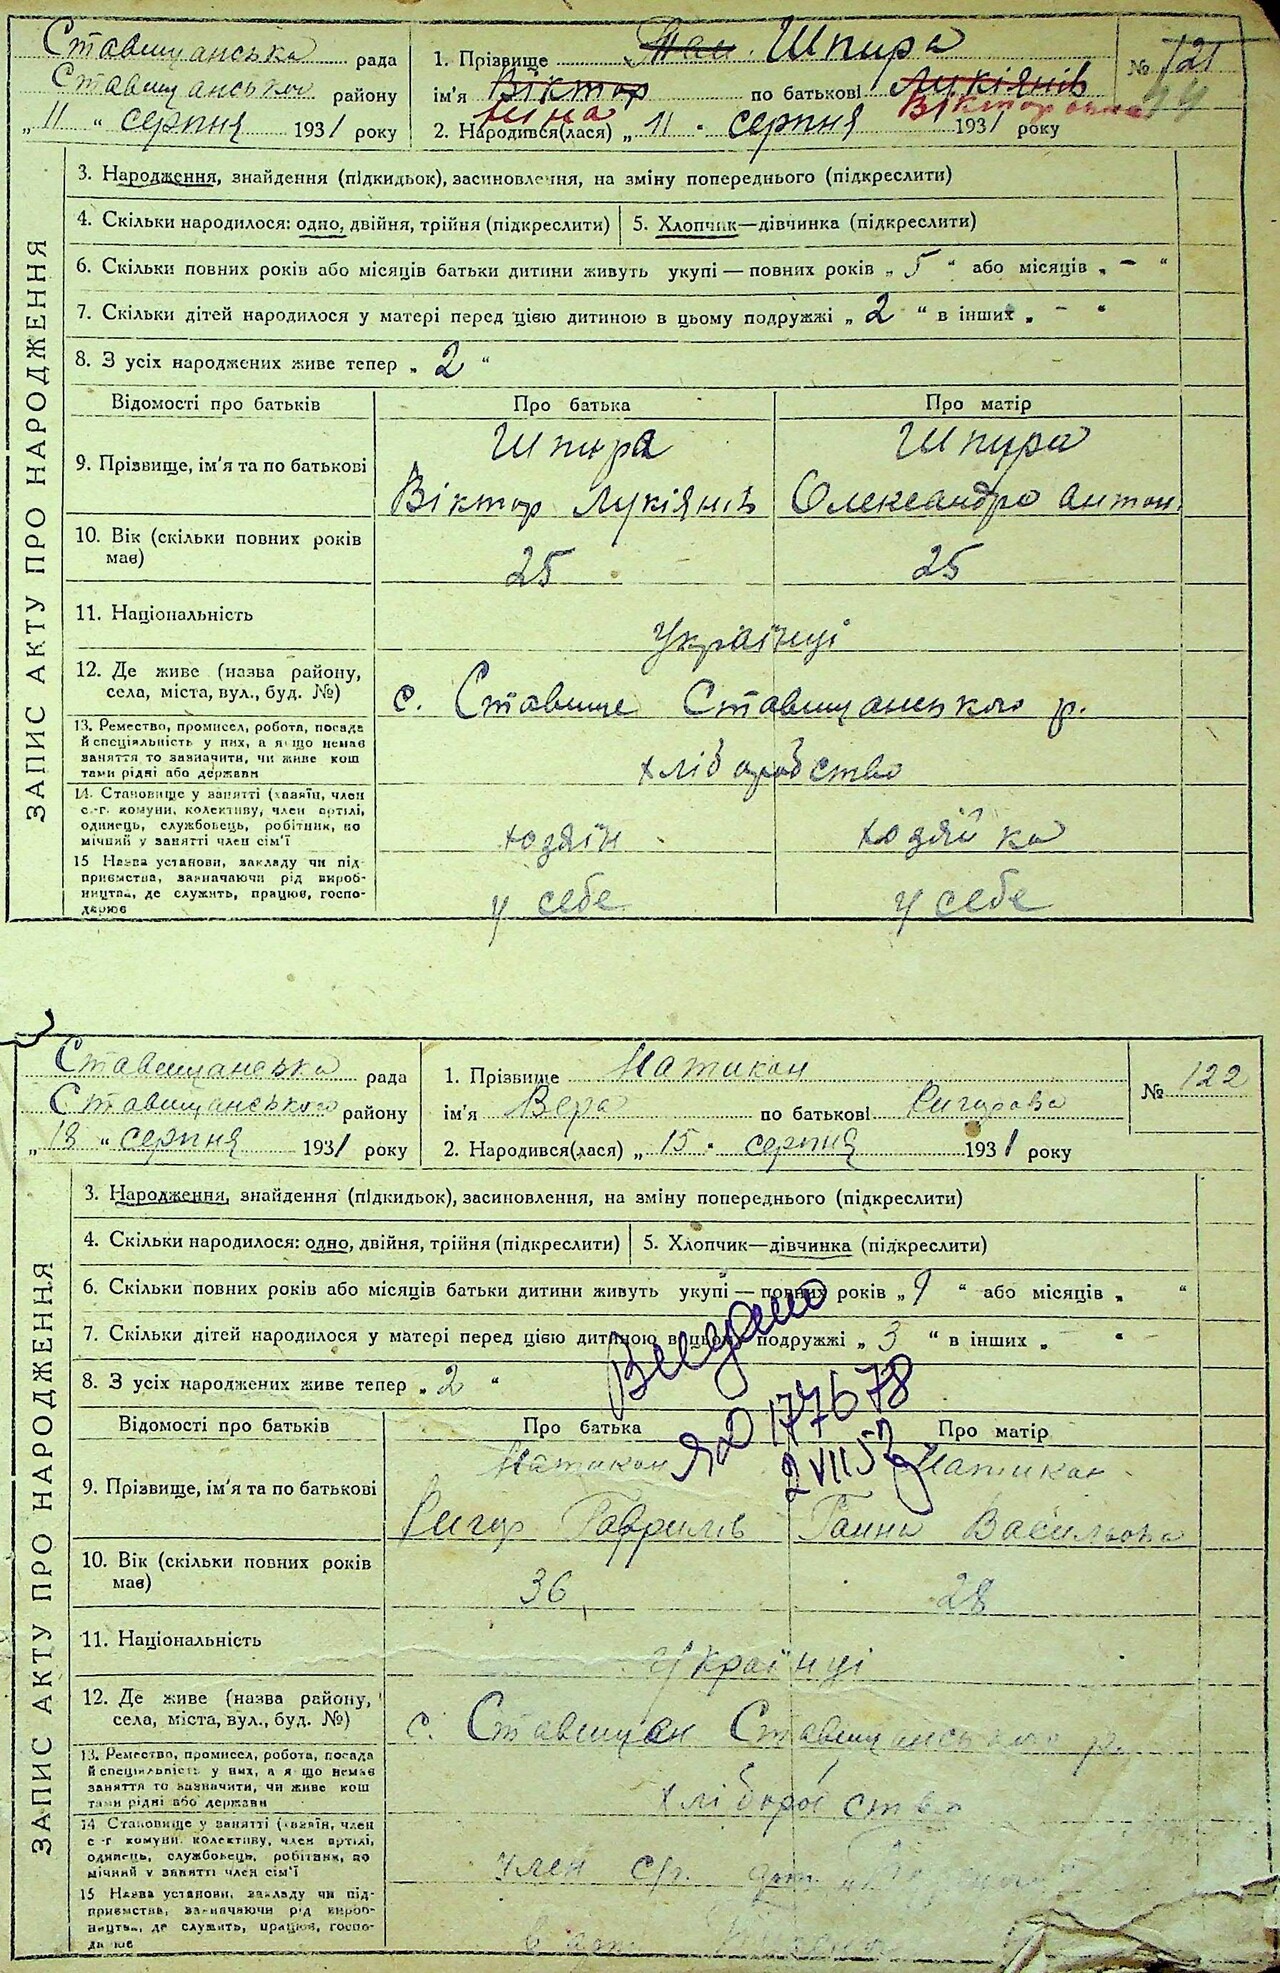 Ставищанська рада
Ставищанського району
„ 11 “ серпня 1931 року
1. Прізвище Шпира
ім'я Віктор по батькові Лукіянів
Вікторовна
2. Народився(лася) „ 11 “ серпня 1931 року
№ 121
44
ЗАПИС АКТУ ПРО НАРОДЖЕННЯ
3. Народження, знайдення (підкидьок), засиновлення, на зміну попереднього (підкреслити)
4. Скільки народилося: одно, двійня, трійня (підкреслити)
5. Хлопчик—дівчинка (підкреслити)
6. Скільки повних років або місяців батьки дитини живуть укупі — повних років „ 5 “ або місяців „ - “
7. Скільки дітей народилося у матері перед цією дитиною в цьому подружжі „ 2 “ в інших „ - “
8. З усіх народжених живе тепер „ 2 “
Відомості про батьків Про батька Про матір
9. Прізвище, ім'я та по батькові
Шпира Шпира
Віктор Лукіянів Олександра Антон.
10. Вік (скільки повних років має)
25 25
11. Національність
Українці
12. Де живе (назва району, села, міста, вул., буд. №)
с. Ставище Ставищанського р.
13. Ремество, промисел, робота, посада
й спеціяльність у них, а якщо немає
заняття то зазначити, чи живе кош
тами рідні або держави
хліборобство
14. Становище у занятті (хазяїн, член
с.-г. комуни, колективу, член артілі,
одинець, службовець, робітник, по
мічний у занятті член сім'ї
хозяїн хозяйка
15 Назва установи, закладу чи під-
приємства, зазначаючи рід вироб-
ництва, де служить, працює, госпо-
дарює
у себе у себе
Ставищанська рада
Ставищанського району
„ 18 “ серпня 1931 року
1. Прізвище Матикан
ім'я Вера по батькові
2. Народився(лася) „ 15 “ серпня 1931 року
№ 122
ЗАПИС АКТУ ПРО НАРОДЖЕННЯ
3. Народження, знайдення (підкидьок), засиновлення, на зміну попереднього (підкреслити)
4. Скільки народилося: одно, двійня, трійня (підкреслити)
5. Хлопчик—дівчинка (підкреслити)
6. Скільки повних років або місяців батьки дитини живуть укупі — повних років „ 9 “ або місяців „ “
7. Скільки дітей народилося у матері перед цією дитиною в цьому подружжі „ 3 “ в інших „ - “ -
8. З усіх народжених живе тепер „ 2 “
177678
2 VII 52
Відомості про батьків Про батька Про матір
9. Прізвище, ім'я та по батькові
Матикан Матикан
Гаврилів Ганна Васильовна
10. Вік (скільки повних років має)
36 28
11. Національність
Українці
12. Де живе (назва району, села, міста, вул., буд. №)
с. Ставищах Ставищанського р.
13. Ремество, промисел, робота, посада
й спеціяльність у них, а якщо немає
заняття то зазначити, чи живе кош
тами рідні або держави
хліборобство
14 Становище у занятті (хазяїн, член
с-г комуни, колективу, член артілі,
одинець, службовець, робітник, по
мічний у занятті член сім'ї
член с/г. арт.
15 Назва установи, закладу чи під-
приємства, зазначаючи рід вироб-
ництва, де служить, працює, госпо-
дарює
в арт.